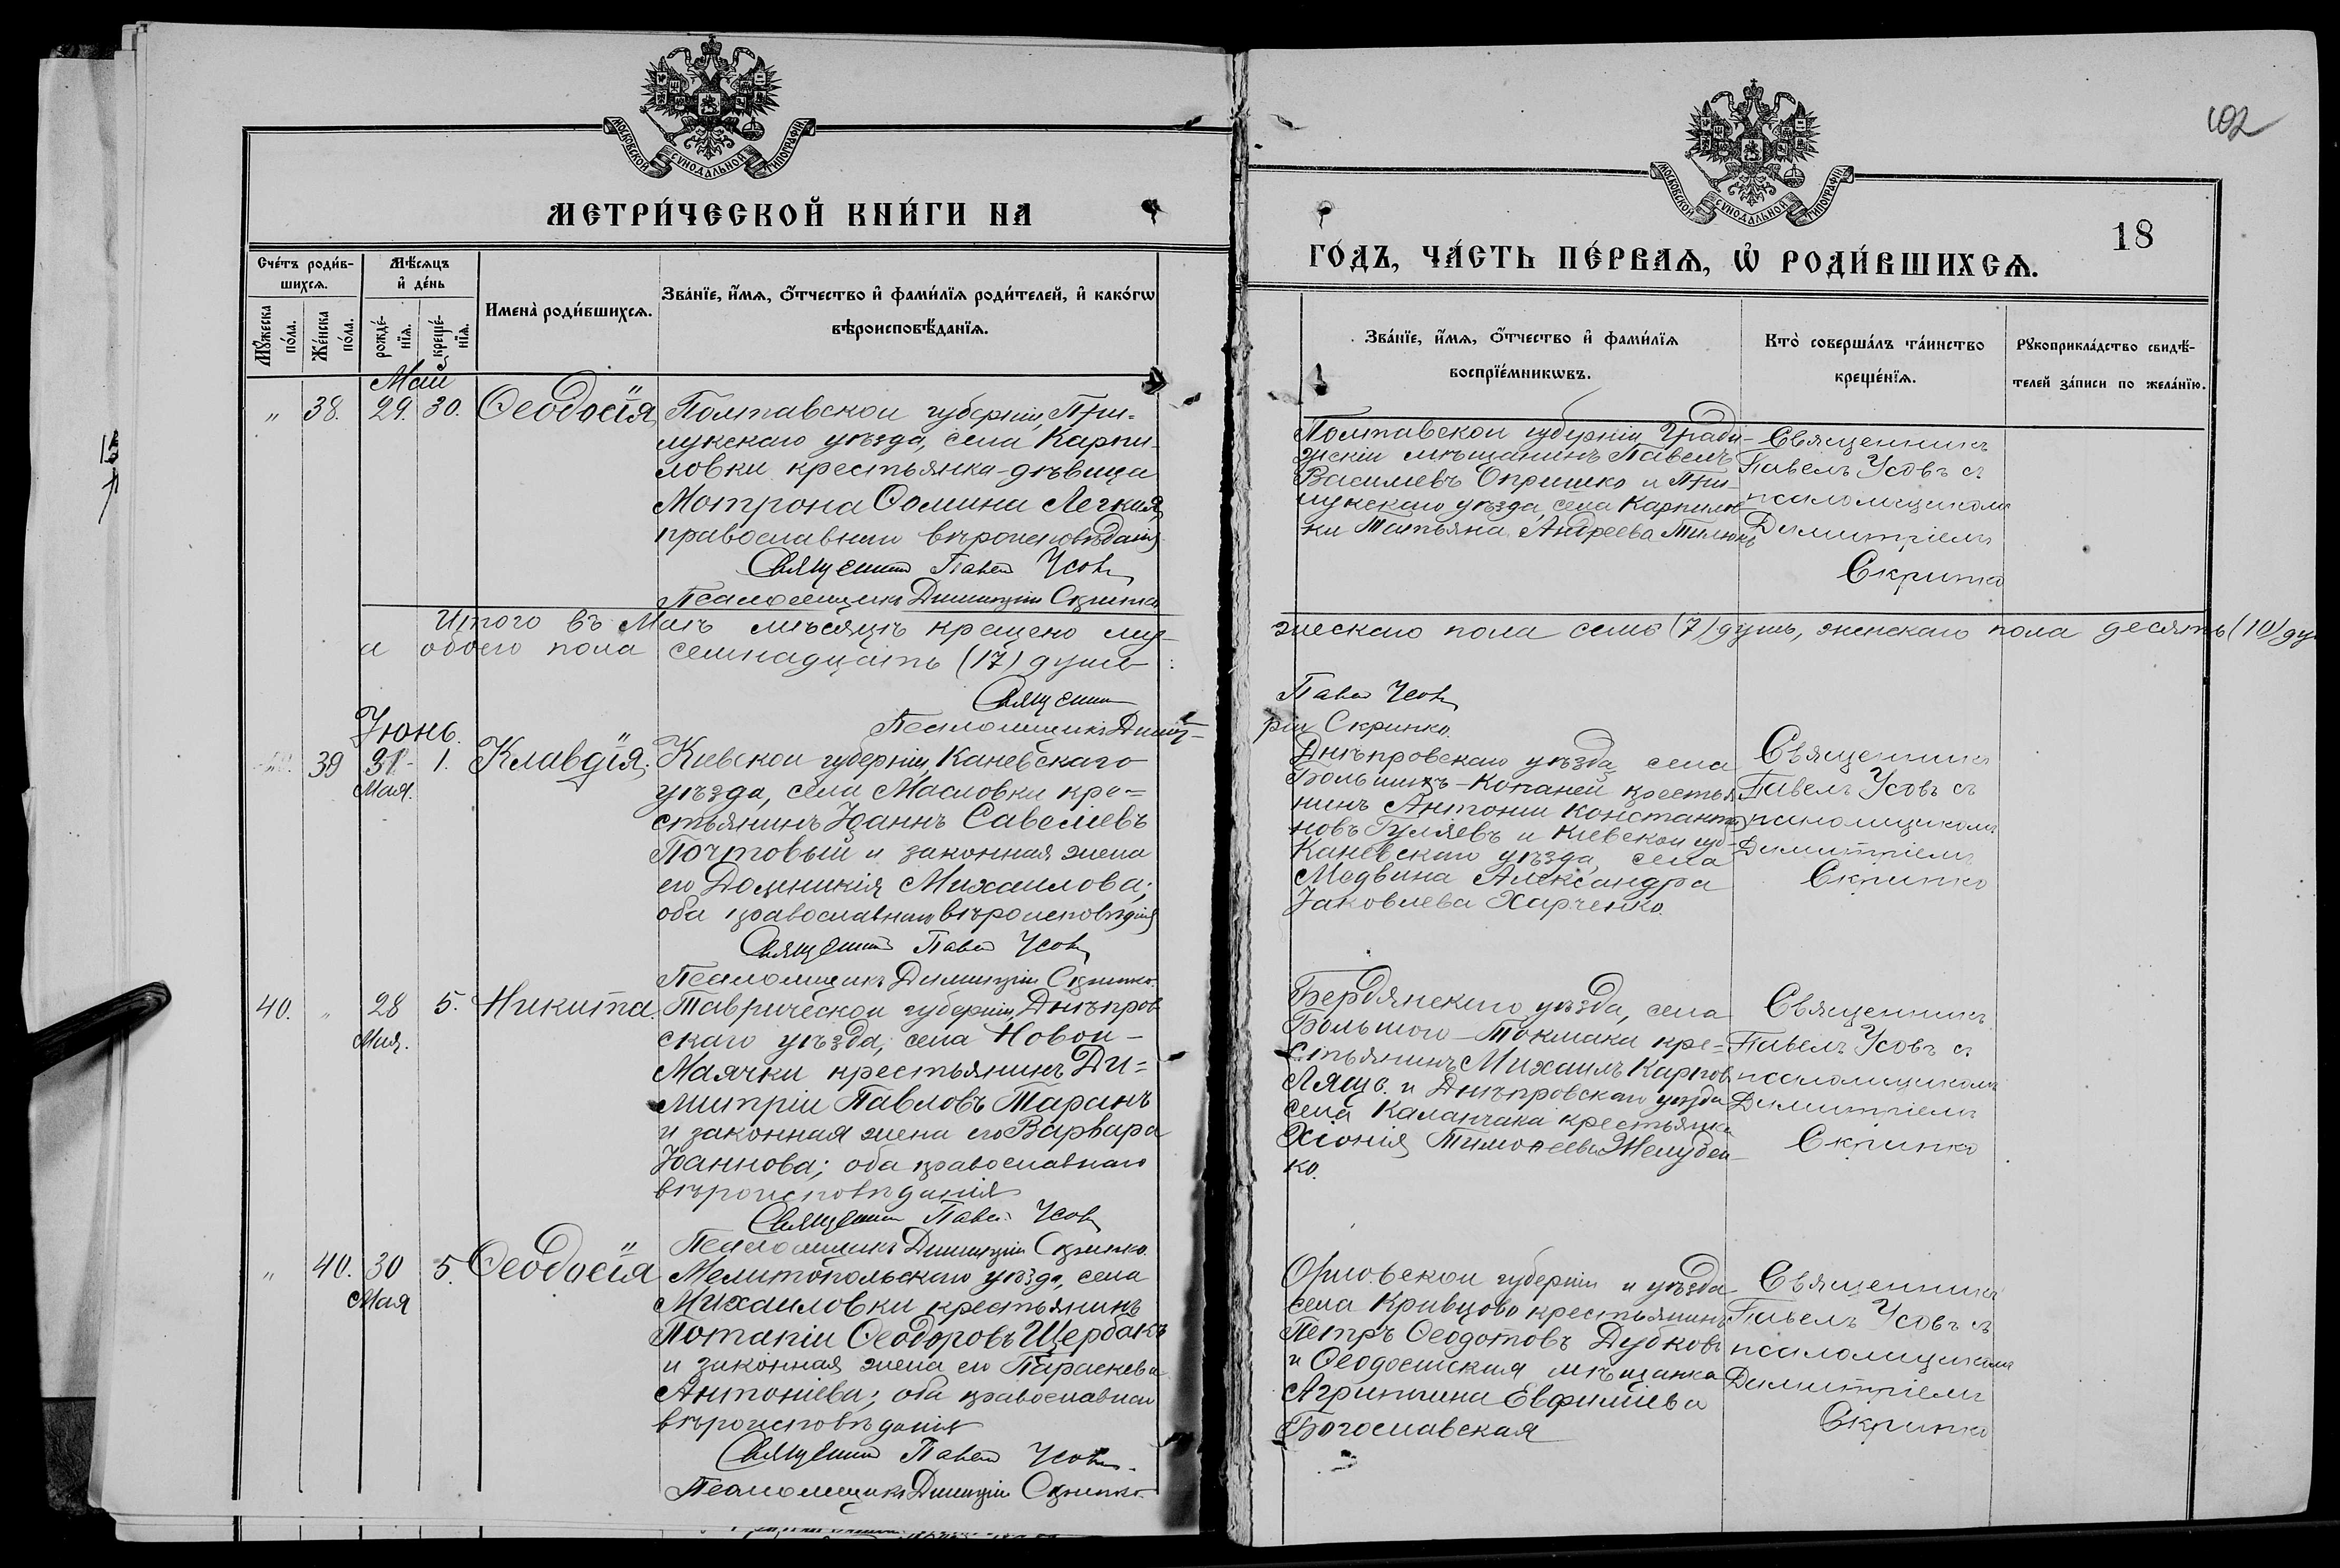 МОСКОВСКОЙ СУНОДАЛЬНОЙ ТИПОГРАФІИ
МЕТРИ́ЧЕСКОЙ КНИ́ГИ НА
Сче́тъ роди́в-
шихсѧ.
Мꙋ́жеска по́ла.
Же́нска по́ла.
Мѣ́сѧцъ
и҆ де́нь
рожде́-
нїѧ.
креще́-
нїѧ.
Имена̀ роди́вшихсѧ.
Зва́нїе, и҆́мѧ, ѻ҆́тчество и҆ фами́лїѧ роди́телей, и҆ како́гѡ
вѣроисповѣ́данїѧ.
Май
" 38. 29. 30. Ѳеодосія
Полтавской губерніи, При-
лукскаго уѣзда, села Карпи-
ловки крестьянка-дѣвица
Мотрона Ѳомина Легкая,
православнаго вѣроисповѣданія
Священник Павел Усовъ
Псаломщикъ Димитрій Скрипко
Итого въ Маѣ мѣсяцѣ крещено му-
а обоего пола семнадцать (17) душъ
Священник
Псаломщикъ Димит-
Іюнь.
39 31- 1. Клавдія.
Мая.
Кіевской губерніи, Каневскаго
уѣзда, села Масловки кре-
стьянинъ Іоаннъ Савеліевъ
Почтовый и законная жена
его Домникія Михаилова;
оба православнаго вѣроисповѣданія
Священник Павел Усовъ
Псаломщикъ Димитрій Скрипко.
40. " 28 5. Никита.
Мая.
Таврической губерніи, Днѣпров
скаго уѣзда, села Новой-
Маячки крестьянинъ Ди-
митрій Павловъ Таранъ
и законная жена его Варвара
Іоаннова; оба православнаго
вѣроисповѣданія
Священник Павел Усовъ
Псаломщикъ Димитрій Скрипко.
" 40. 30 5. Ѳеодосія
Мая
Мелитопольскаго уѣзда, села
Михайловки крестьянинъ
Потапій Ѳеодоровъ Щербакъ
и законная жена его Параскева
Антоніева; оба православнаго
вѣроисповѣданія
Священник Павел Усовъ.
Псаломщикъ Димитрій Скрипко.
102
МОСКОВСКОЙ СУНОДАЛЬНОЙ ТИПОГРАФІИ
18
ГО́ДЪ, ЧА́СТЬ ПЕ́РВАѦ, Ѡ҆ РОДИ́ВШИХСѦ.
Зва́нїе, и҆́мѧ, ѻ҆́тчество и҆ фами́лїѧ
воспрїе́мникѡвъ.
Кто̀ соверша́лъ та́инство
креще́нїѧ.
Рꙋкоприкла́дство свидѣ́-
телей за́писи по жела́нїю.
Полтавской губерніи, Гради-
жскій мѣщанинъ Павелъ
Василіевъ Опришко и При-
лукскаго уѣзда, села Карпилов-
ки Татьяна Андреева
Священникъ
Павелъ Усовъ съ
псаломщикомъ
Димитріемъ
Скрипко
жескаго пола семь (7) душъ, женскаго пола десять (10) ду
Павел Усовъ
рій Скрипко.
Днѣпровскаго уѣзда села
Большихъ-Копаней крестья
нинъ Антоній Константи
новъ Гуляевъ и Кіевской губ-
Каневскаго уѣзда, села
Медвина Александра
Іаковлева Харченко.
Священникъ
Павелъ Усовъ съ
псаломщикомъ
Димитріемъ
Скрипко
Бердянскаго уѣзда, села
Большого-Токмака кре-
стьянинъ Михаилъ Карпов
Лящ. и Днѣпровскаго уѣзда
села Каланчака крестьянка
Хіонія Тимоѳеева Желуден
ко.
Священникъ
Павелъ Усовъ съ
псаломщикомъ
Димитріемъ
Скрипко
Орловской губерніи и уѣзда
села Кривцово крестьянинъ
Петръ Ѳеодотовъ Дубковъ
и Ѳеодосійская мѣщанка
Агриппина Евфиміева
Богославская
Священникъ
Павелъ Усовъ съ
псаломщикомъ
Димитріемъ
Скрипко